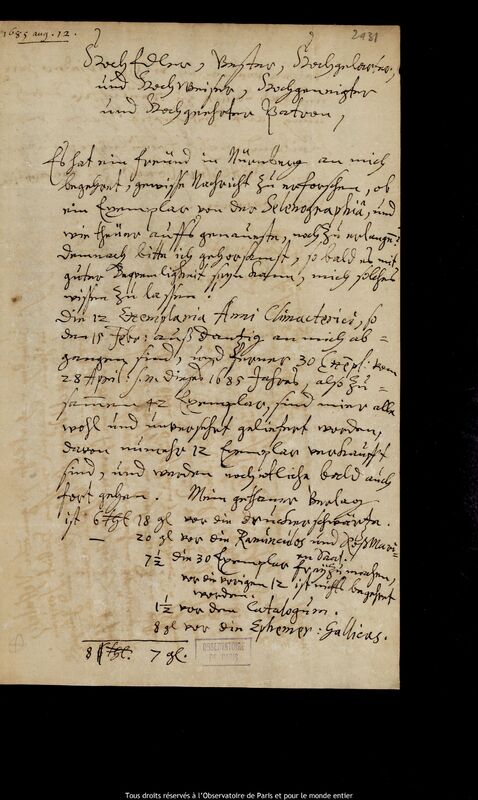 1685 aug. 12.
2931
HochEdler, Vester, Hochgelarter,
und HochWeiser, Hochgeneigter
und Hochgeehrter Patron,
Es hat ein freünd in Nürnberg an mich
begehret, gewisse Nachricht zu erforschen, ob
ein Exemplar von der Selenographiâ, und
wie theüer auffs genaueste, noch zu erlangen?
demnach bitte ich gehorsamst, so bald es mit
guter Bequemligkeit seyn kann, mich solches
wissen zu lassen.
Die 12 Exemplaria Anni Climacterici, so
den 15 Febr: auß Dantzig an mich ab=
gangen sind, und ferner 30 Exempl: vom
28 April: s.n. dieses 1685 Jahres, alß zu=
sammen 42 Exemplar, sind mier alle
wohl und unversehrt geliefert worden,
davon nunmehr 12 Exemplar verkaufft
sind, und werden noch etliche bald auch
fort gehen. Mein gethaner Verlag
ist 6 thl 18 gl vor die druckerschwärtz.
— 20 gl vor die und
7½ die 30 Exemplar frey zu machen,
vor die vorigen 12 ist nichts begehret
worden.
1½ vor den Catalogum.
8 gl vor die Ephemer: Gallicas.
8 thl. 7 gl.
OBSERVATOIRE
DE PARIS
Tous droits réservés à l'Observatoire de Paris et pour le monde entier